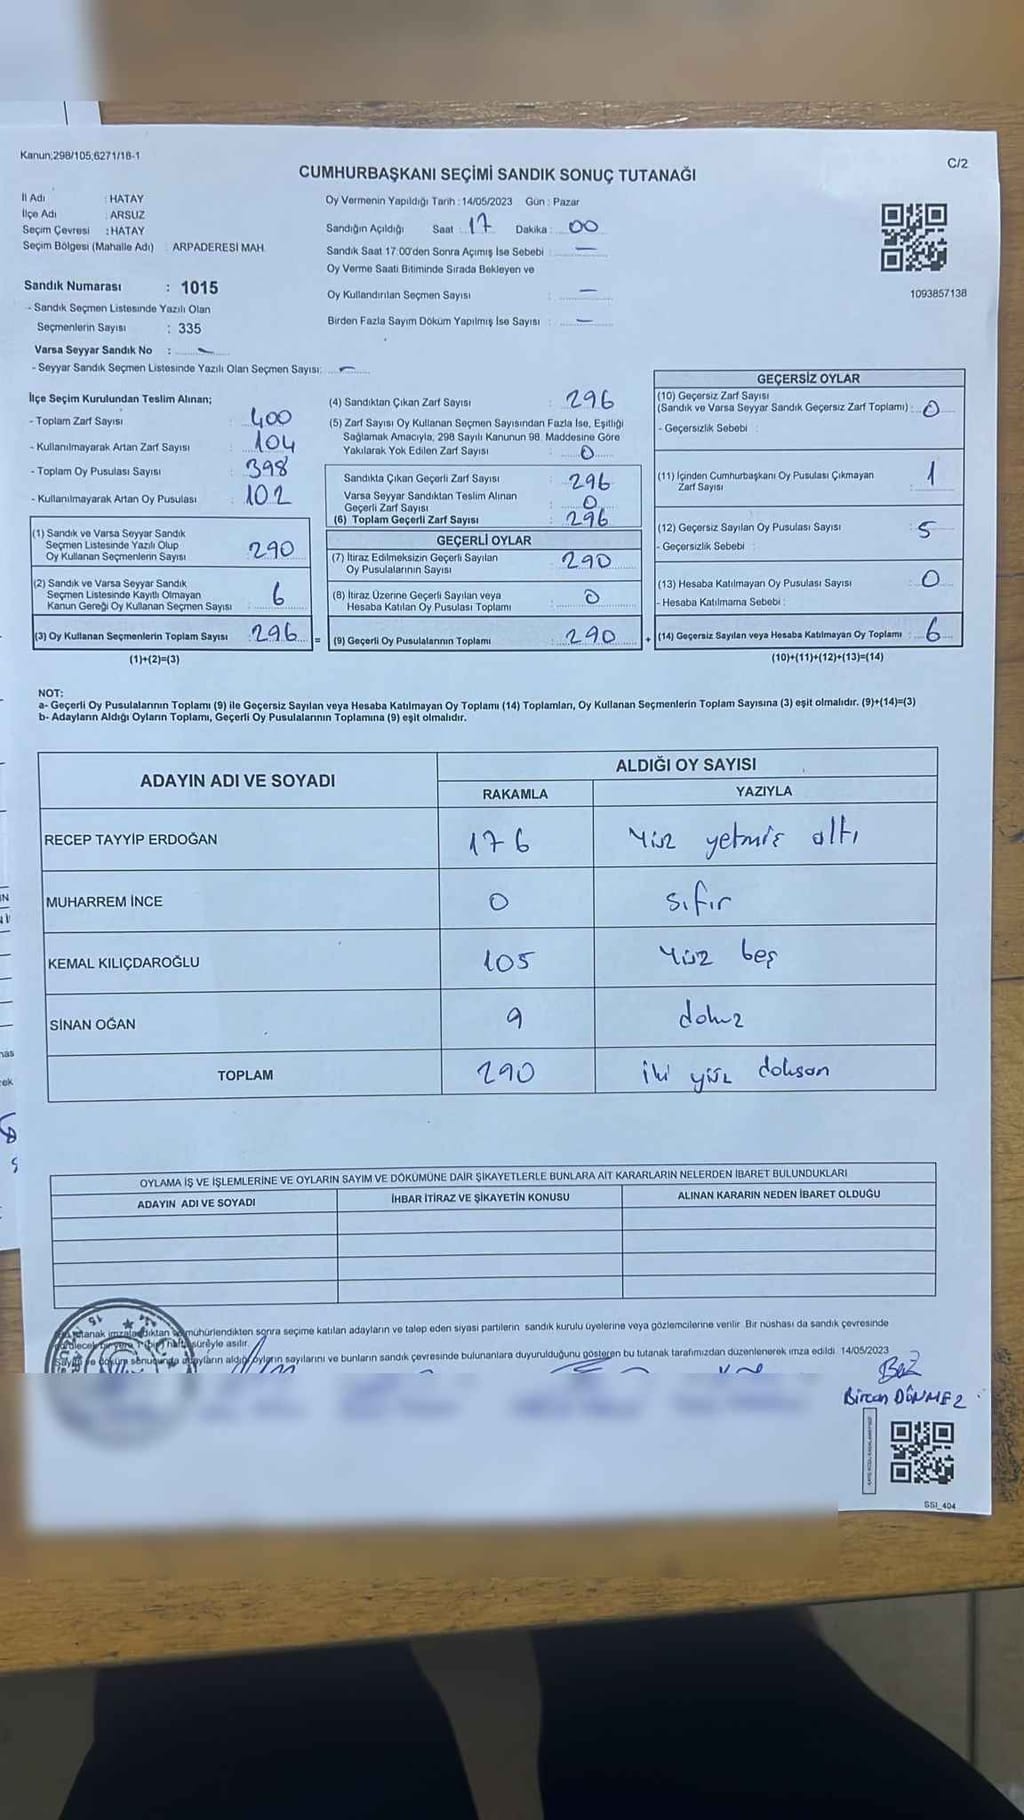 Kanun;298/105;6271/18-1
C/2
CUMHURBAŞKANI SEÇİMİ SANDIK SONUÇ TUTANAĞI
İl Adı : HATAY
İlçe Adı : ARSUZ
Seçim Çevresi : HATAY
Seçim Bölgesi (Mahalle Adı) : ARPADERESİ MAH.
Sandık Numarası : 1015
- Sandık Seçmen Listesinde Yazılı Olan
Seçmenlerin Sayısı : 335
Varsa Seyyar Sandık No : -
- Seyyar Sandık Seçmen Listesinde Yazılı Olan Seçmen Sayısı: -
Oy Vermenin Yapıldığı Tarih : 14/05/2023 Gün : Pazar
Sandığın Açıldığı Saat : 17 Dakika : 00
Sandık Saat 17:00'den Sonra Açımış İse Sebebi : -
Oy Verme Saati Bitiminde Sırada Bekleyen ve
Oy Kullandırılan Seçmen Sayısı : -
Birden Fazla Sayım Döküm Yapılmış İse Sayısı : -
1093857138
İlçe Seçim Kurulundan Teslim Alınan;
- Toplam Zarf Sayısı : 400
- Kullanılmayarak Artan Zarf Sayısı : 104
- Toplam Oy Pusulası Sayısı : 398
- Kullanılmayarak Artan Oy Pusulası : 102
(1) Sandık ve Varsa Seyyar Sandık
Seçmen Listesinde Yazılı Olup
Oy Kullanan Seçmenlerin Sayısı : 290
(2) Sandık ve Varsa Seyyar Sandık
Seçmen Listesinde Kayıtlı Olmayan
Kanun Gereği Oy Kullanan Seçmen Sayısı : 6
(3) Oy Kullanan Seçmenlerin Toplam Sayısı : 296 =
(1)+(2)=(3)
(4) Sandıktan Çıkan Zarf Sayısı : 296
(5) Zarf Sayısı Oy Kullanan Seçmen Sayısından Fazla İse, Eşitliği
Sağlamak Amacıyla, 298 Sayılı Kanunun 98. Maddesine Göre
Yakılarak Yok Edilen Zarf Sayısı : 0
Sandıkta Çıkan Geçerli Zarf Sayısı : 296
Varsa Seyyar Sandıktan Teslim Alınan
Geçerli Zarf Sayısı : 0
(6) Toplam Geçerli Zarf Sayısı : 296
GEÇERLİ OYLAR
(7) İtiraz Edilmeksizin Geçerli Sayılan
Oy Pusulalarının Sayısı : 290
(8) İtiraz Üzerine Geçerli Sayılan veya
Hesaba Katılan Oy Pusulası Toplamı : 0
(9) Geçerli Oy Pusulalarının Toplamı : 290 +
GEÇERSİZ OYLAR
(10) Geçersiz Zarf Sayısı
(Sandık ve Varsa Seyyar Sandık Geçersiz Zarf Toplamı) : 0
- Geçersizlik Sebebi :
(11) İçinden Cumhurbaşkanı Oy Pusulası Çıkmayan
Zarf Sayısı : 1
(12) Geçersiz Sayılan Oy Pusulası Sayısı : 5
- Geçersizlik Sebebi :
(13) Hesaba Katılmayan Oy Pusulası Sayısı : 0
- Hesaba Katılmama Sebebi :
(14) Geçersiz Sayılan veya Hesaba Katılmayan Oy Toplamı : 6
(10)+(11)+(12)+(13)=(14)
NOT:
a- Geçerli Oy Pusulalarının Toplamı (9) ile Geçersiz Sayılan veya Hesaba Katılmayan Oy Toplamı (14) Toplamları, Oy Kullanan Seçmenlerin Toplam Sayısına (3) eşit olmalıdır. (9)+(14)=(3)
b- Adayların Aldığı Oyların Toplamı, Geçerli Oy Pusulalarının Toplamına (9) eşit olmalıdır.
ADAYIN ADI VE SOYADI ALDIĞI OY SAYISI
RAKAMLA YAZIYLA
RECEP TAYYİP ERDOĞAN 176 Yüz yetmiş altı
MUHARREM İNCE 0 sıfır
KEMAL KILIÇDAROĞLU 105 Yüz beş
SİNAN OĞAN 9 dokuz
TOPLAM 290 İki yüz doksan
OYLAMA İŞ VE İŞLEMLERİNE VE OYLARIN SAYIM VE DÖKÜMÜNE DAİR ŞİKAYETLERLE BUNLARA AİT KARARLARIN NELERDEN İBARET BULUNDUKLARI
ADAYIN ADI VE SOYADI İHBAR İTİRAZ VE ŞİKAYETİN KONUSU ALINAN KARARIN NEDEN İBARET OLDUĞU
tutanak imzalandıktan ve mühürlendikten sonra seçime katılan adayların ve talep eden siyasi partilerin sandık kurulu üyelerine veya gözlemcilerine verilir. Bir nüshası da sandık çevresinde
bir yere 1 (bir) hafta süreyle asılır.
Sayım ve döküm sonucunda adayların aldığı oyların sayılarını ve bunların sandık çevresinde bulunanlara duyurulduğunu gösteren bu tutanak tarafımızdan düzenlenerek imza edildi. 14/05/2023
Bircan DÖNMEZ
SSI_404